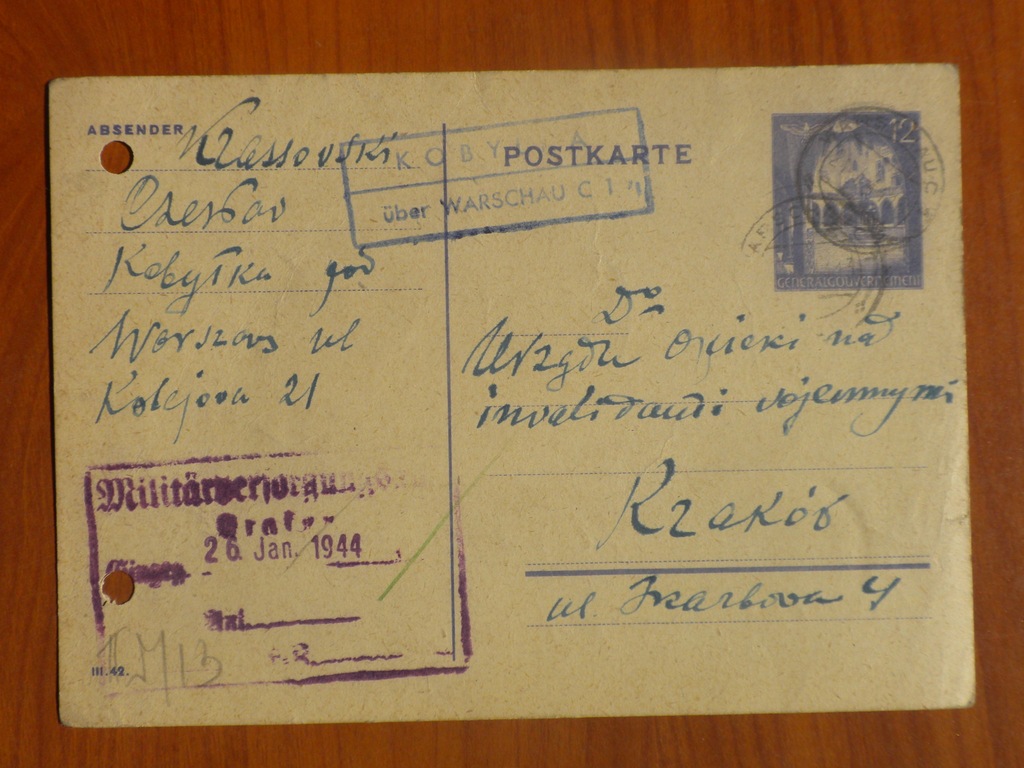 ABSENDER
Krassowski
Czesław
Kobyłka pod
Warszawą ul
Kolejowa 21
KOBY A
über WARSCHAU C 1
POSTKARTE
12
GENERALGOUVERNEMENT
Do
Urzędu Opieki nad
inwalidami wojennymi
Kraków
ul Skarbowa 4
Militärversorgungs
26. Jan. 1944
Anl.
III.42.